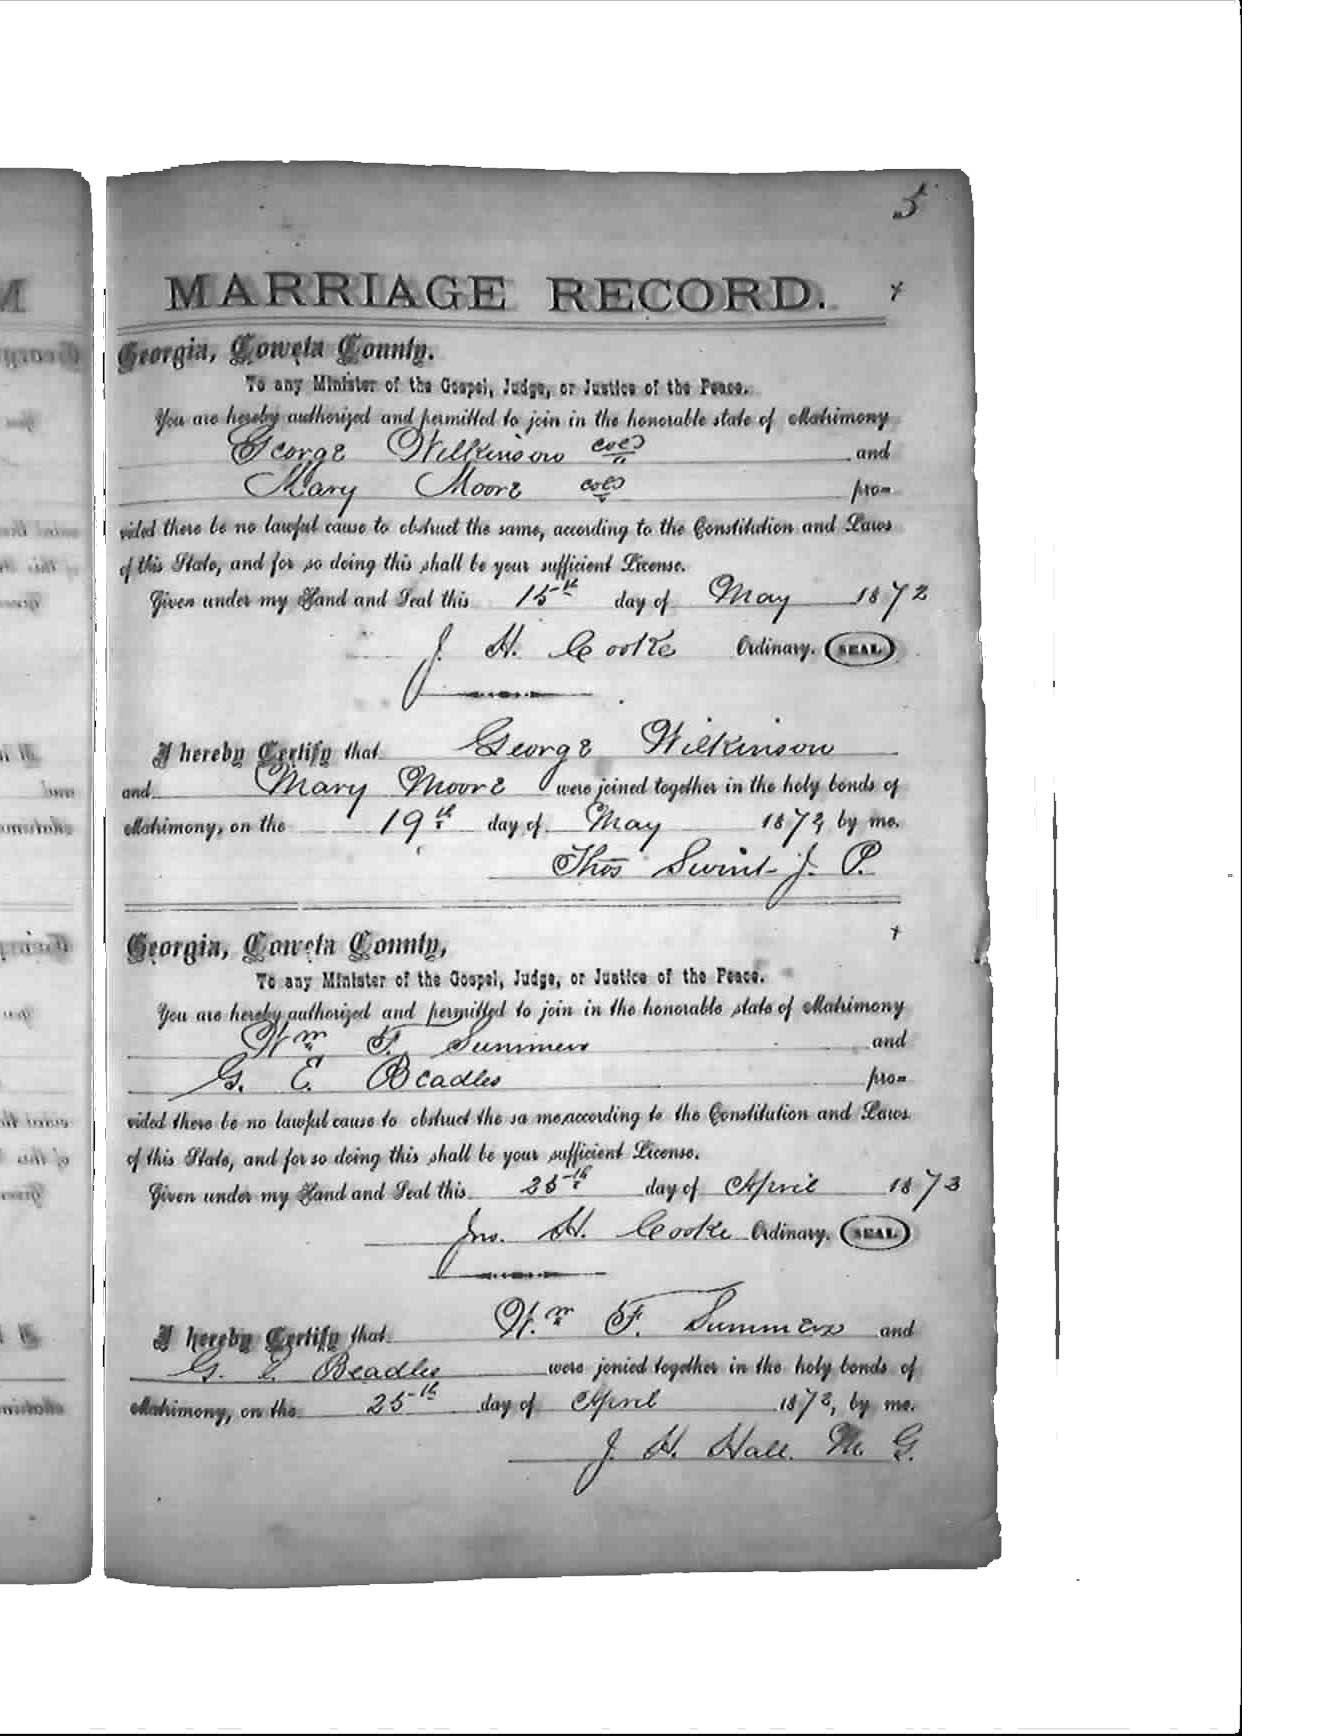 5
MARRIAGE RECORD.
Georgia, Coweta County.
To any Minister of the Gospel, Judge, or Justice of the Peace.
You are hereby authorized and permitted to join in the honorable state of Matrimony
George Wilkinson cold and
Mary Moore cold pro=
vided there be no lawful cause to obstruct the same, according to the Constitution and Laws
of this State, and for so doing this shall be your sufficient License.
Given under my Hand and Seal this 15th day of May 1872
J. H. Cooke Ordinary. SEAL
I hereby Certify that George Wilkinson
and Mary Moore were joined together in the holy bonds of
Matrimony, on the 19th day of May 1872, by me.
Thos Swint J. P.
Georgia, Coweta County,
To any Minister of the Gospel, Judge, or Justice of the Peace.
You are hereby authorized and permitted to join in the honorable state of Matrimony
Wm F. Summers and
G. E. Beadles pro=
vided there be no lawful cause to obstruct the sa me,according to the Constitution and Laws
of this State, and for so doing this shall be your sufficient License.
Given under my Hand and Seal this 25th day of April 1873
Jno. H. Cooke Ordinary. SEAL
I hereby Certify that Wm F. Summers and
G. E. Beadles were jonied together in the holy bonds of
Matrimony, on the 25th day of April 1873, by me.
J. H. Hall. M. G.